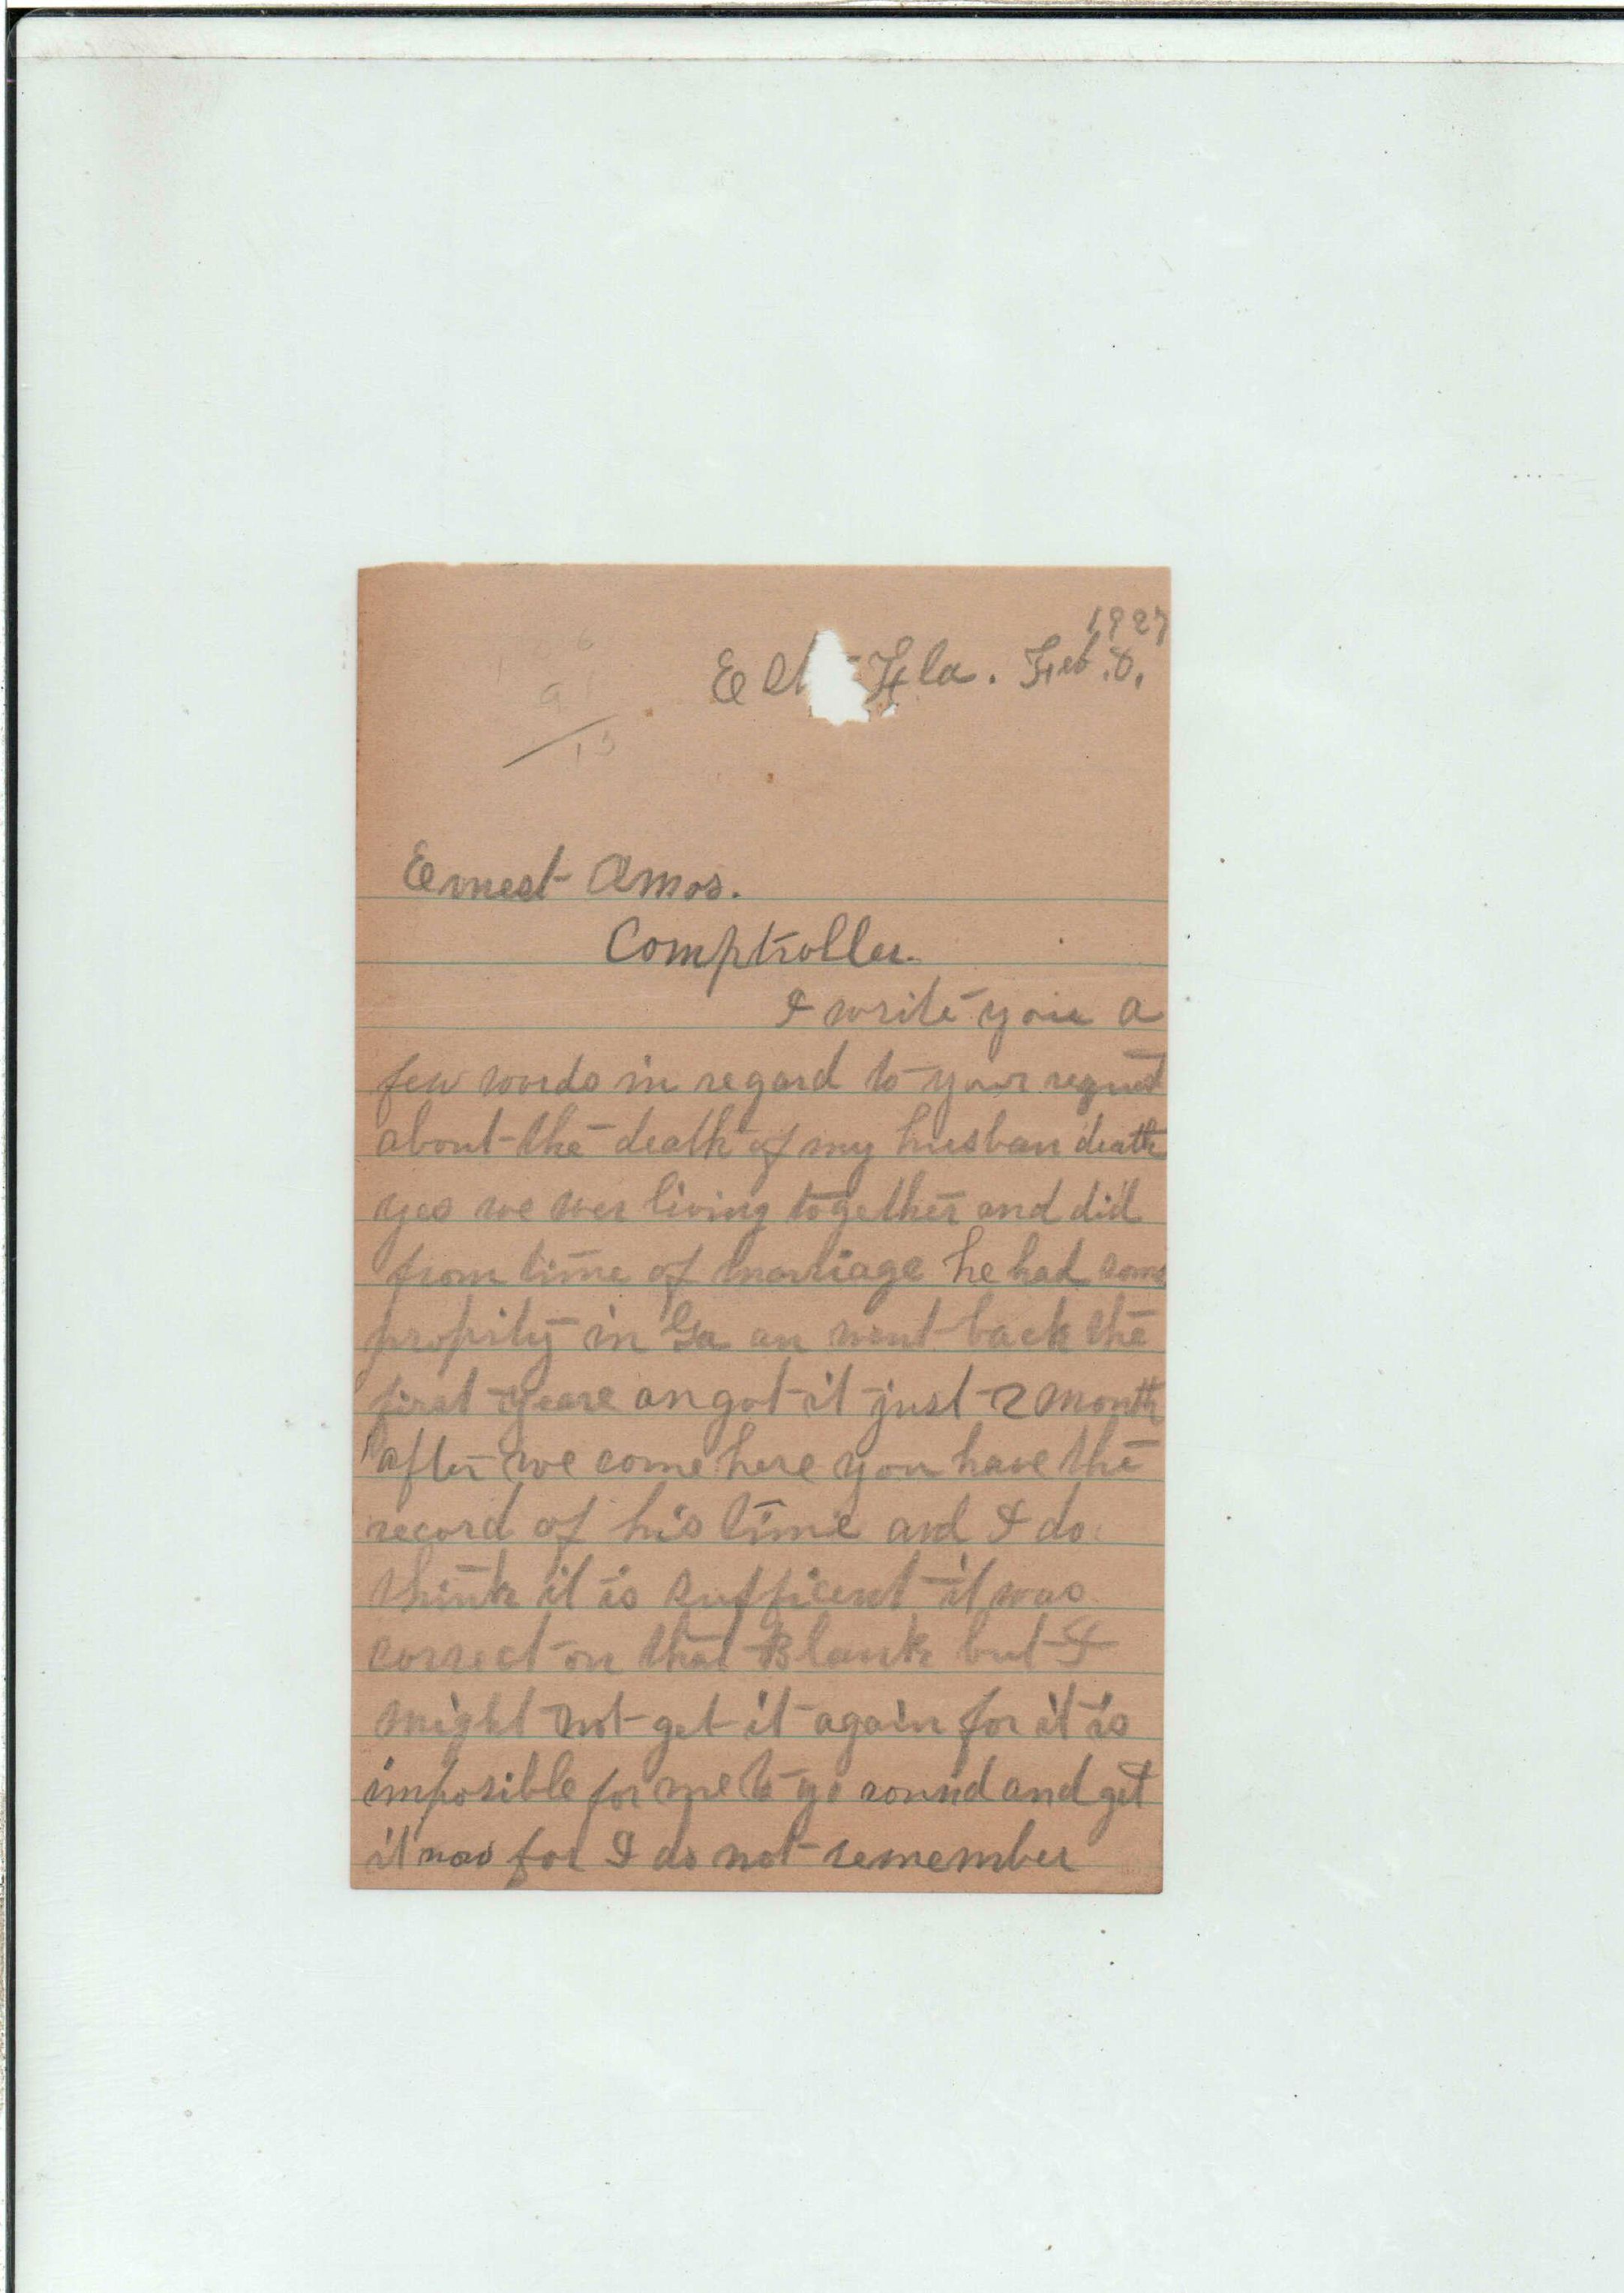 1927
Fla. Feb. 8.
Ernest Amos.
Comptroller.
I write you a
few words in regard to your request
about the death of my husban death
yes we wer living together and did
from time of marriage he had some
propity in Ga an went back the
first yeare an got it just 2 month
after we come here you have the
record of his time and I do
think it is sufficent it was
correct on that Blank but I
might not get it again for it is
imposible for me to go round and get
it now for I do not remember